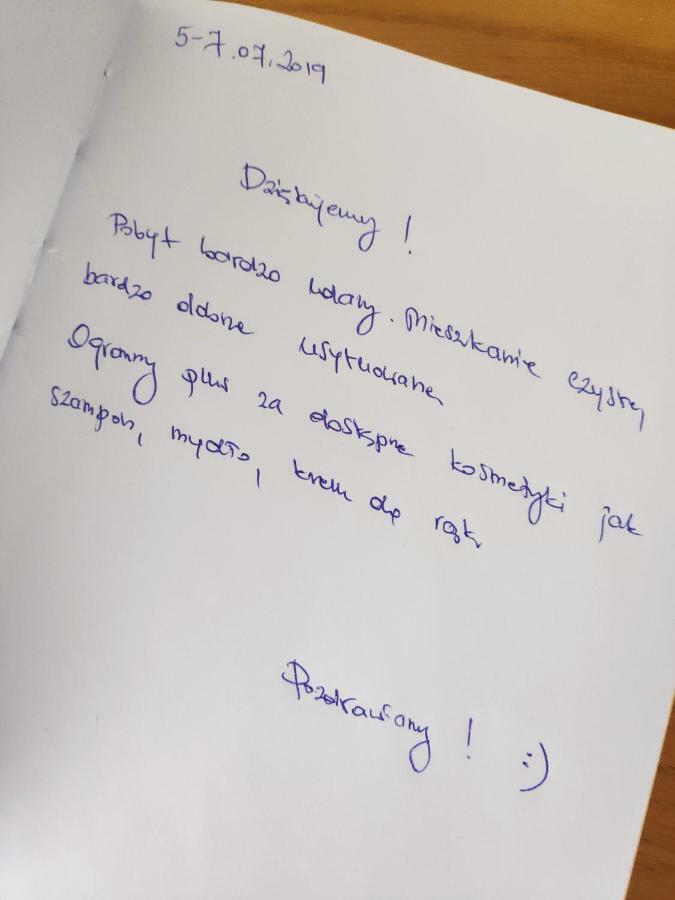 5-7.07.2019
Dziękujemy!
Pobyt bardzo udany. Mieszkanie czyste,
bardzo dobrze usytuowane
Ogromny plus za dostępne kosmetyki jak
szampon, mydło, krem do rąk
Pozdrawiamy! :)